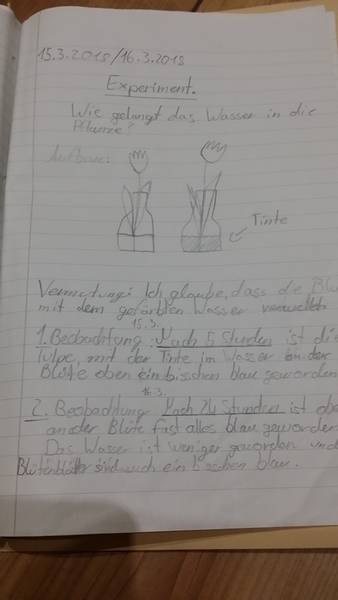 15.3.2018/16.3.2018
Experiment.
Wie gelangt das Wasser in die
Pflanze?
Aufbau:
Tinte
Vermutung: Ich glaube, dass die Blu
mit dem gefärbten Wasser verwelkt
15.3.
1. Beobachtung: Nach 5 Stunden ist die
Tulpe, mit der Tinte im Wasser an der
Blüte oben ein bisschen blau geworden
16.3.
2. Beobachtung Nach 24 Stunden ist obe
an der Blüte fast alles blau geworden
Das Wasser ist weniger geworden und
Blütenblätter sind auch ein bisschen blau.